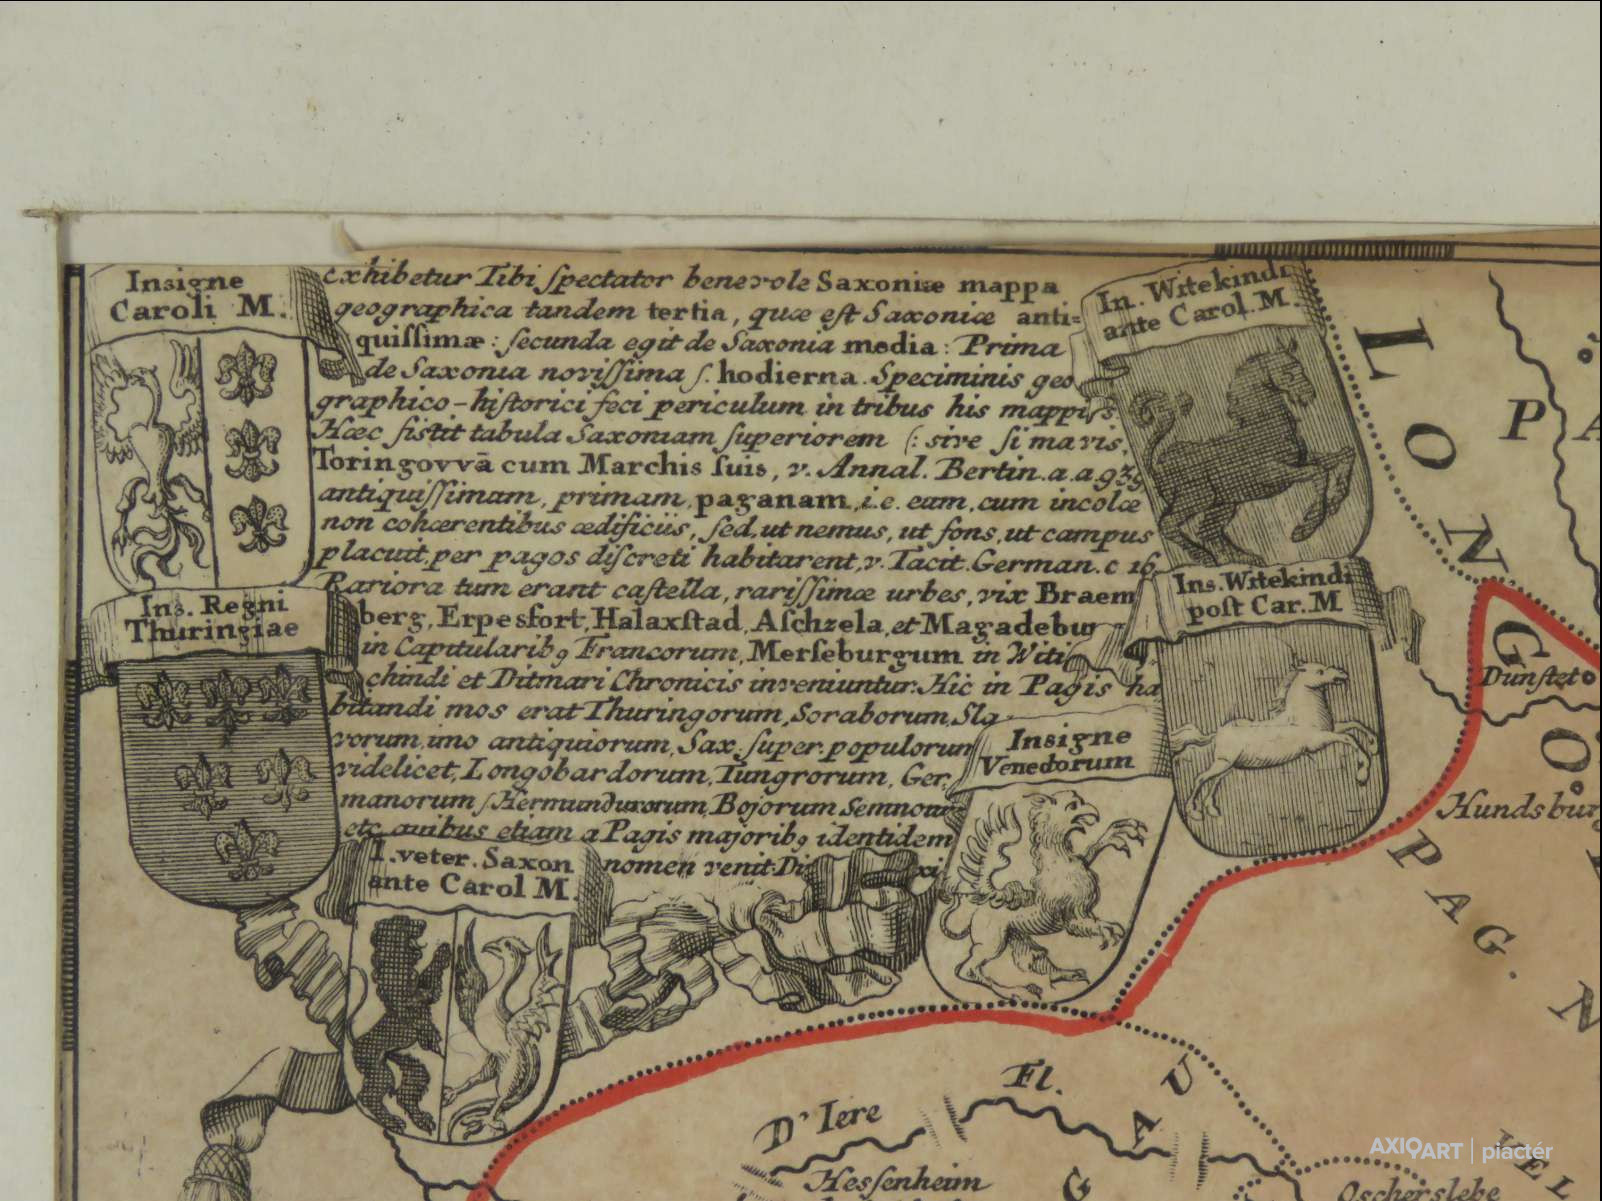 Insigne
Caroli M.
exhibetur Tibi ſpectator benevole Saxoniæ mappa
geographica tandem tertia, quæ eſt Saxoniæ anti=
quiſſimæ: ſecunda egit de Saxonia media: Prima
de Saxonia noviſſima ſ. hodierna. Speciminis geo
graphico-hiſtorici feci periculum in tribus his mappis.
Hæc ſiſtit tabula Saxoniam ſuperiorem (: sive ſi mavis,
Toringovvā cum Marchis ſuis, v. Annal. Bertin. a. a. 939
antiquiſſimam, primam, paganam, i.e. eam, cum incolæ
non cohærentibus ædificiis, ſed, ut nemus, ut fons, ut campus
placuit, per pagos diſcreti habitarent, v. Tacit. German. c 16.
Rariora tum erant caſtella, rariſſimæ urbes, vix Braem
berg, Erpesfort, Halaxſtad, Aſchzela, et Magadebur
in Capitularibꝯ Francorum, Merſeburgum in Witi
chindi et Ditmari Chronicis inveniuntur. Hic in Pagis ha
bitandi mos erat Thuringorum, Soraborum, Sla
vorum, imo antiquiorum, Sax. ſuper. populorum
videlicet, Longobardorum, Tungrorum, Ger,
manorum ſ Hermundurorum, Bojorum Semnonu
etc. quibus etiam a Pagis majoribꝯ identidem
nomen venit. Di xi
In. Witekindi
ante Carol. M.
Ins. Regni
Thuringiae
Ins. Witekindi
poſt Car. M
Insigne
Venedorum
I. veter. Saxon
ante Carol M.
LONGO
P A
Dunſtet
Hundsbur
PAG. N
Fl.
D' Iere
G A U
Hesſenheim
Oscherslebe
VEL
AXIOART | piactér